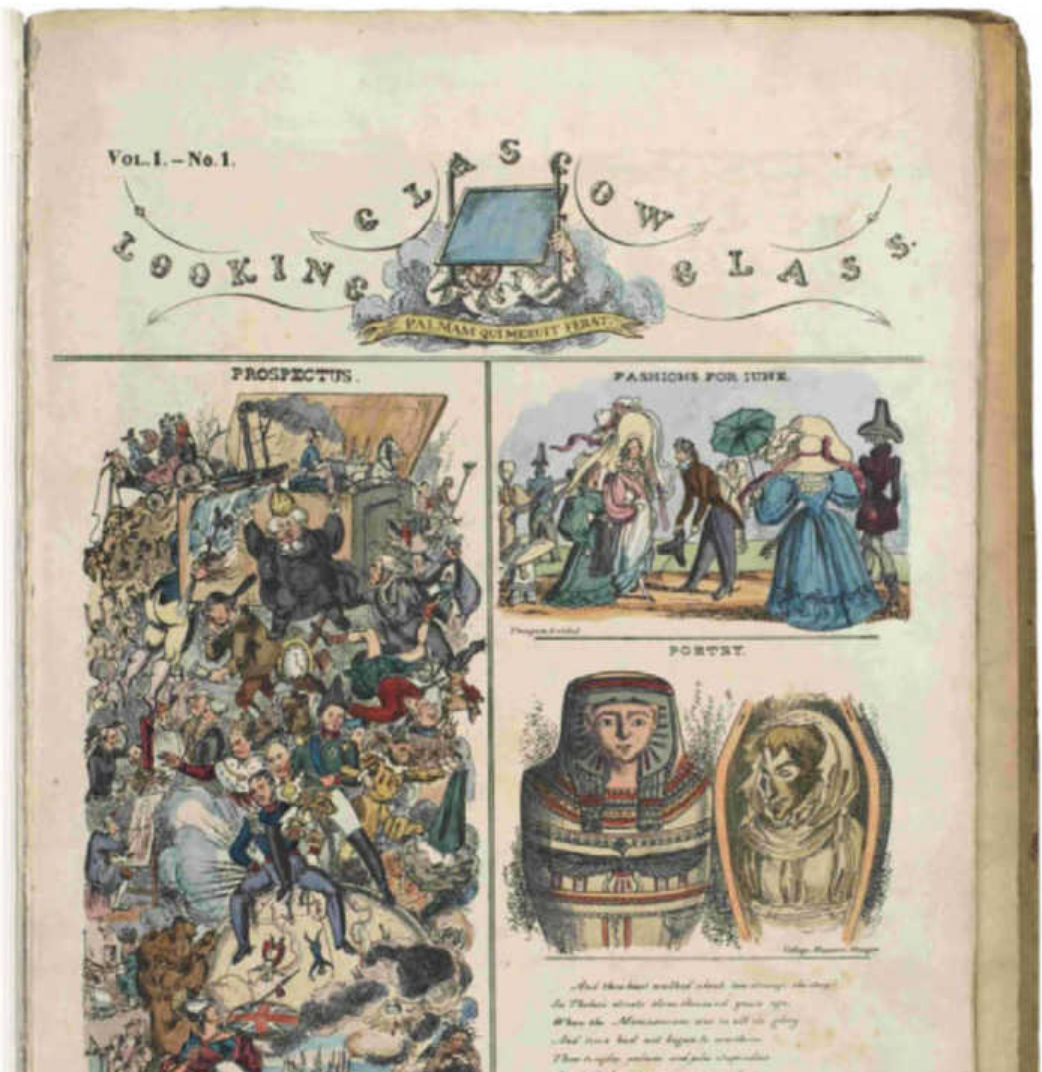 VOL. 1. – No. 1.
GLASGOW
LOOKING GLASS.
PALMAM QUI MERUIT FERAT.
PROSPECTUS.
FASHIONS FOR JUNE.
POETRY.
And thou hast walked about how strange the story
In Thebes streets three thousand years ago,
When the Memnonium was in all its glory
And time had not begun to overthrow
Those temples palaces and piles stupendous